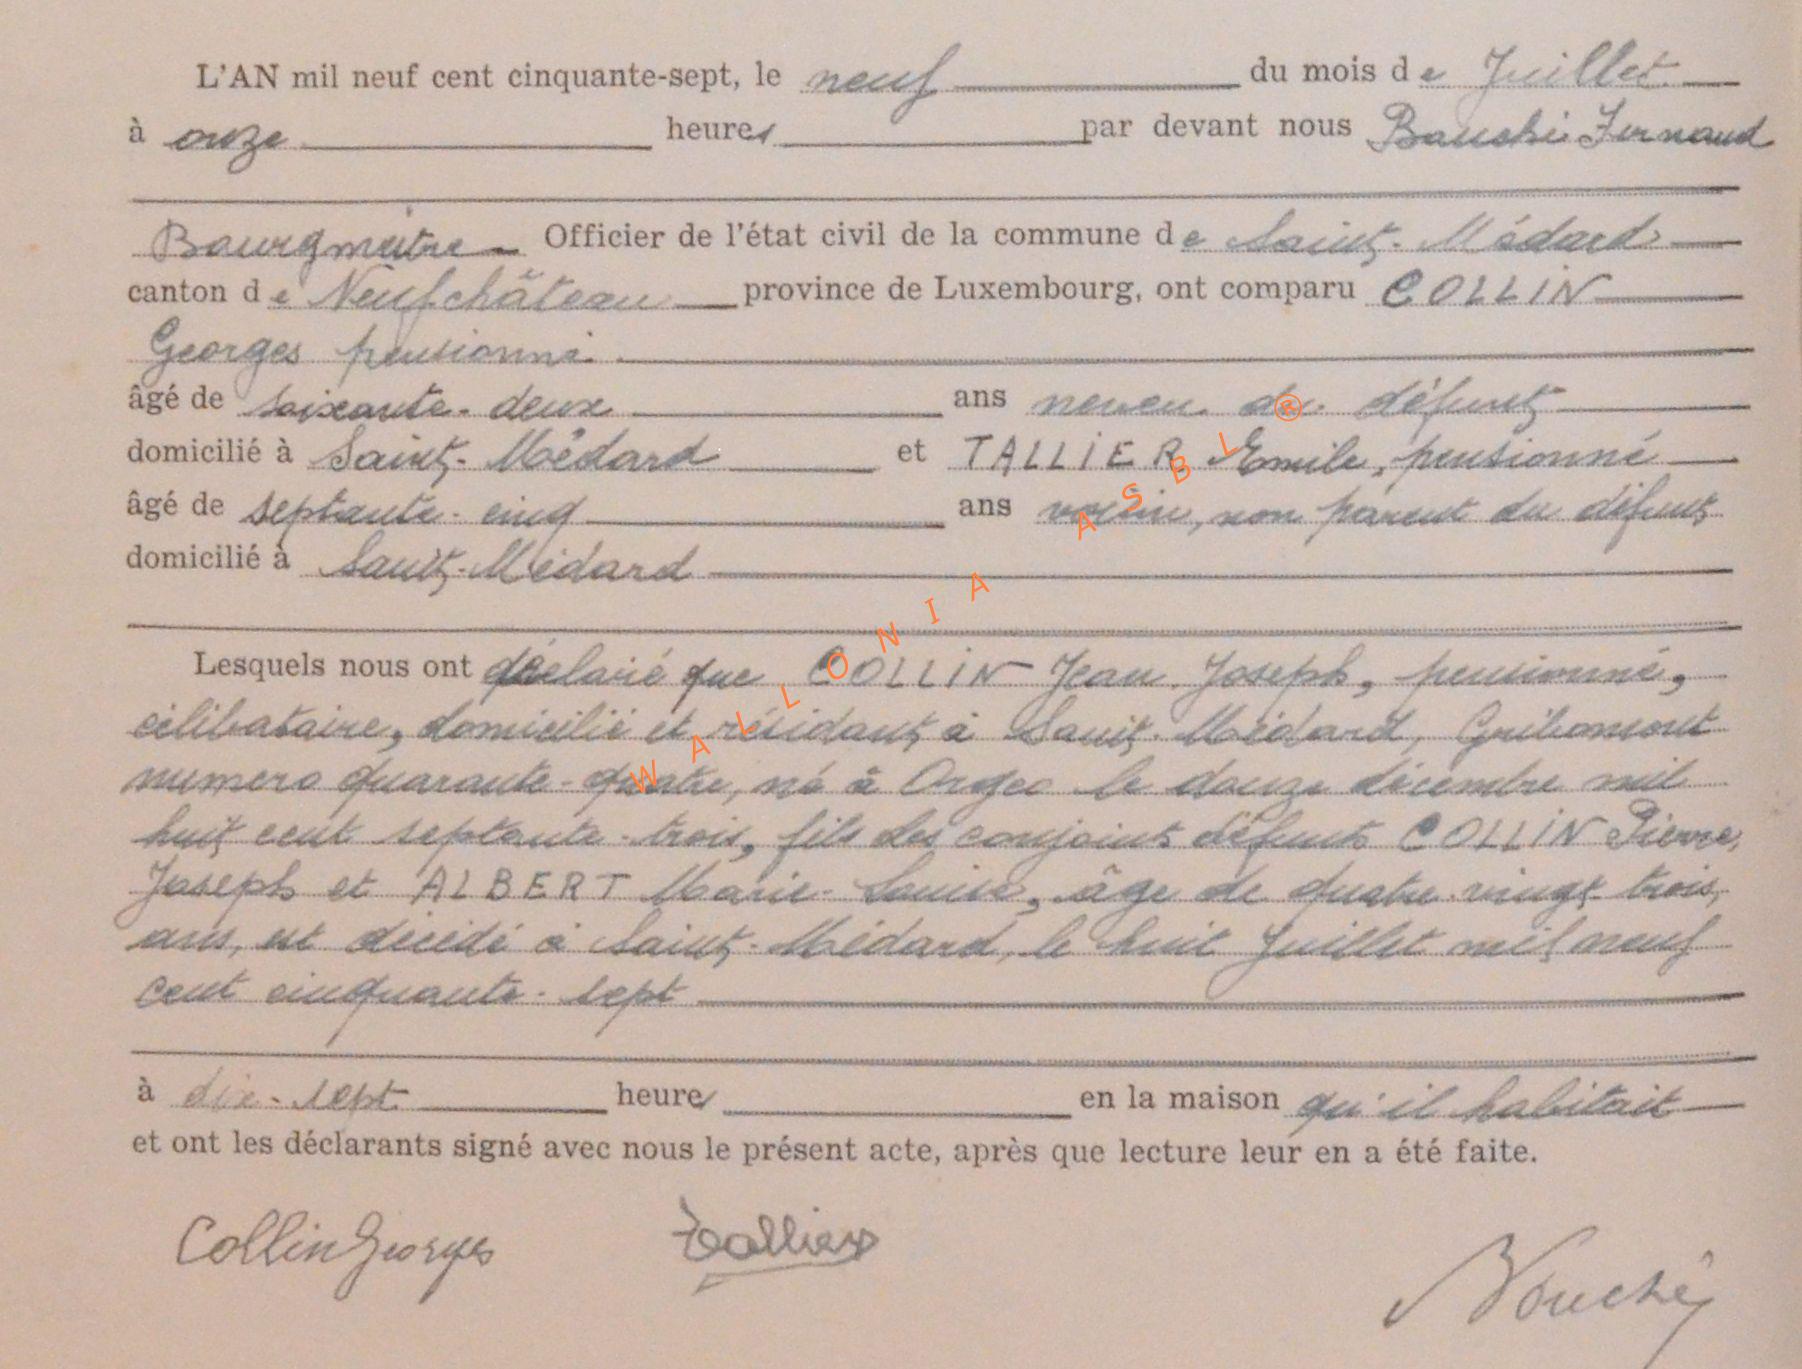 L'AN mil neuf cent cinquante-sept, le neuf du mois de Juillet
à onze heures par devant nous Bauché Fernand
Bourgmestre Officier de l'état civil de la commune de Saint-Médard
canton de Neufchâteau province de Luxembourg, ont comparu COLLIN
Georges pensionné
âgé de soixante-deux ans neveu du défunt
domicilié à Saint-Médard et TALLIER Emile, pensionné
âgé de septante-cinq ans voisin, non parent du défunt
domicilié à Saint-Médard
Lesquels nous ont déclaré que COLLIN Jean Joseph, pensionné,
célibataire, domicilié et résidant à Saint-Médard, Gribomont
numero quarante-quatre, né à Orgeo le douze décembre mil
huit cent septante-trois, fils des conjoints défunts COLLIN Pierre,
Joseph et ALBERT Marie-Louise, âge de quatre-vingt-trois
ans, est décédé à Saint-Médard, le huit Juillet mil neuf
cent cinquante-sept
à dix-sept heures en la maison qu'il habitait
et ont les déclarants signé avec nous le présent acte, après que lecture leur en a été faite.
Collin Georges Tallier Bauché
WALLONIA ASBL ®